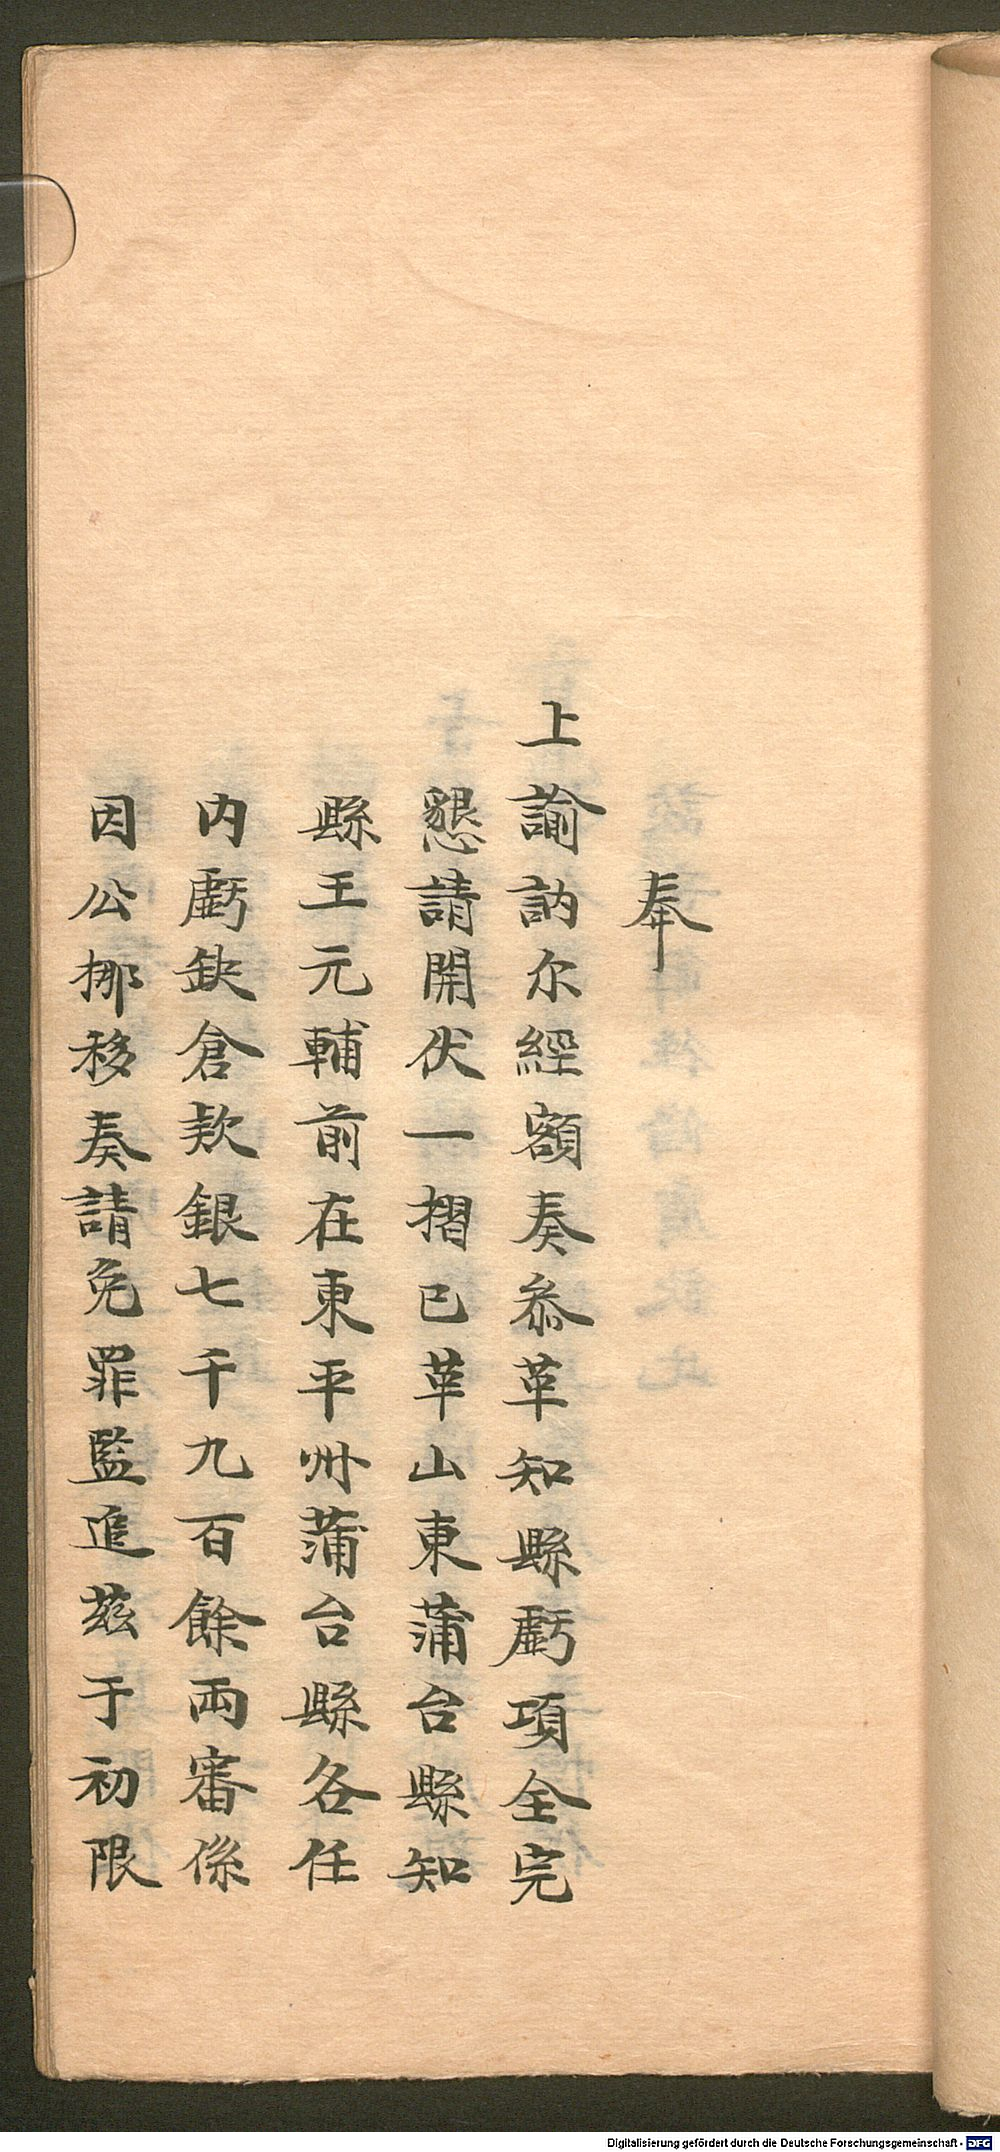 奉
上諭訥尔經額奏叅革知縣虧項全完
懇請開伏一摺已革山東蒲台縣知
縣王元輔前在東平州蒲台縣各任
内虧缺倉欵銀七千九百餘兩審係
因公挪移奏請免罪監追茲于初限
Digitalisierung gefördert durch die Deutsche Forschungsgemeinschaft - DFG